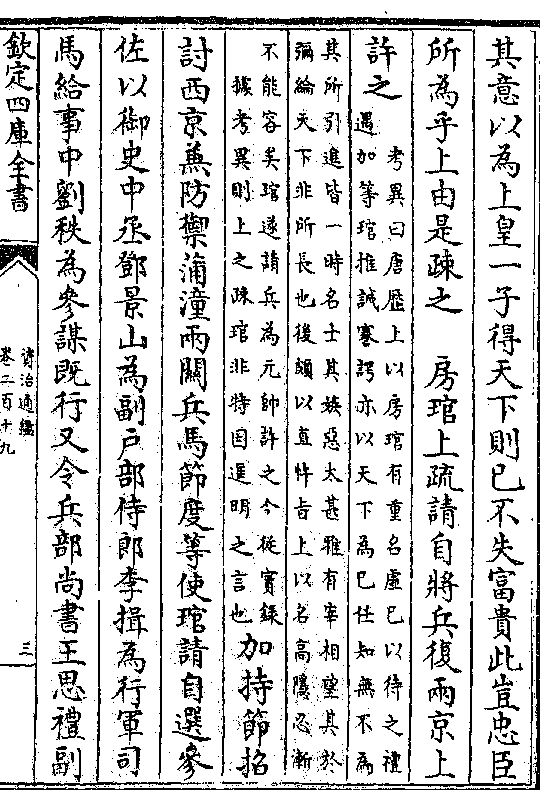 其意以為上皇一子得天下則已不失富貴此豈忠臣
所為乎上由是疎之　房琯上疏請自將兵復兩京上
許之
考異曰唐歴上以房琯有重名虛已以待之禮
遇加等琯推誠蹇諤亦以天下為已任知無不為
其所引進皆一時名士其嫉惡太甚雖有宰相望其於
彌綸天下非所長也後頗以直忤旨上以名高隱忍漸
不能容矣琯遂請兵為元帥許之今從實錄
據考異則上之疎琯非特因進明之言也
加持節招
討西京兼防禦蒲潼兩關兵馬節度等使琯請自選參
佐以御史中丞鄧景山為副户部侍郎李揖為行軍司
馬給事中劉秩為參謀既行又令兵部尚書王思禮副
欽定四庫全書
資治通鑑
卷二百十九
三